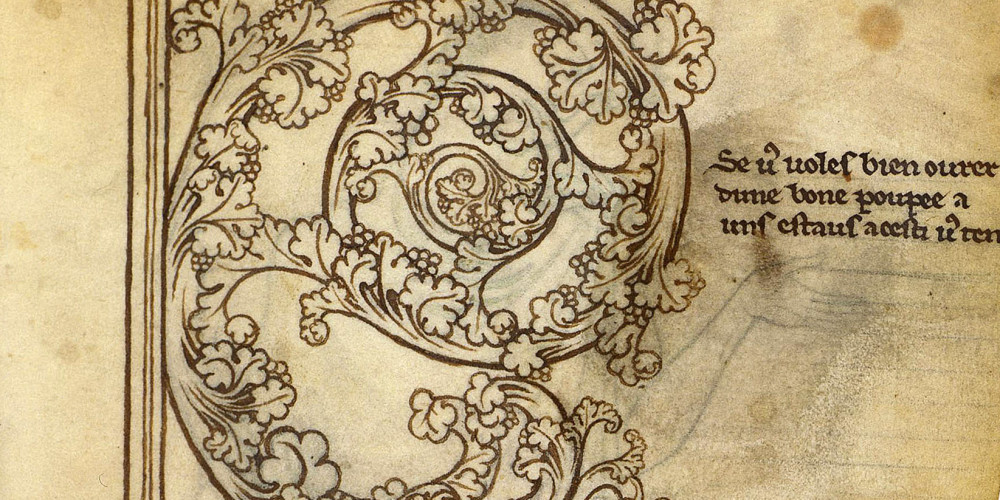 Se uꝰ uoleſ bien ourer
dune bone poupee a
uns eſtauſ aceſti uꝰ ten